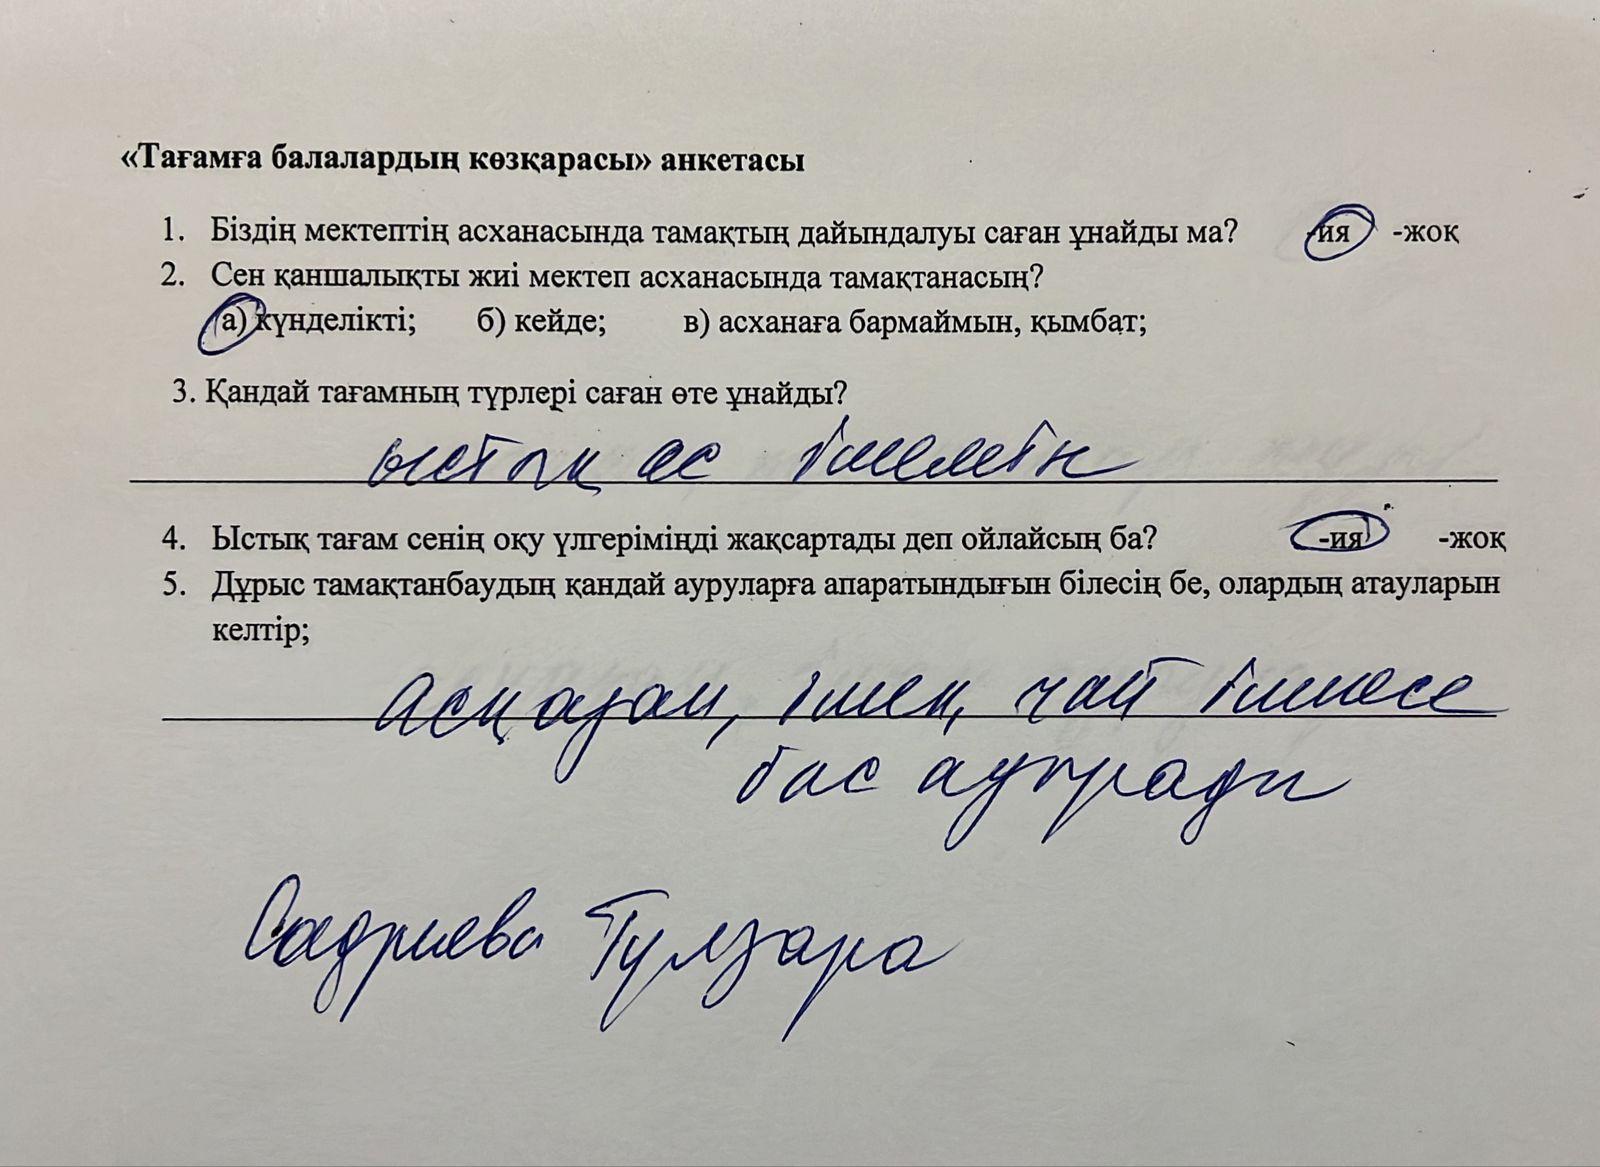 «Тағамға балалардың көзқарасы» анкетасы
1. Біздің мектептің асханасында тамақтың дайындалуы саған ұнайды ма? -ия -жоқ
2. Сен қаншалықты жиі мектеп асханасында тамақтанасың?
а) күнделікті; б) кейде; в) асханаға бармаймын, қымбат;
3. Қандай тағамның түрлері саған өте ұнайды?
ыстық ас
4. Ыстық тағам сенің оқу үлгеріміңді жақсартады деп ойлайсың ба? -ия -жоқ
5. Дұрыс тамақтанбаудың қандай ауруларға апаратындығын білесің бе, олардың атауларын
келтір;
асқазан, ішек, чай ішпесе
бас ауыради
Садриева Гулзара